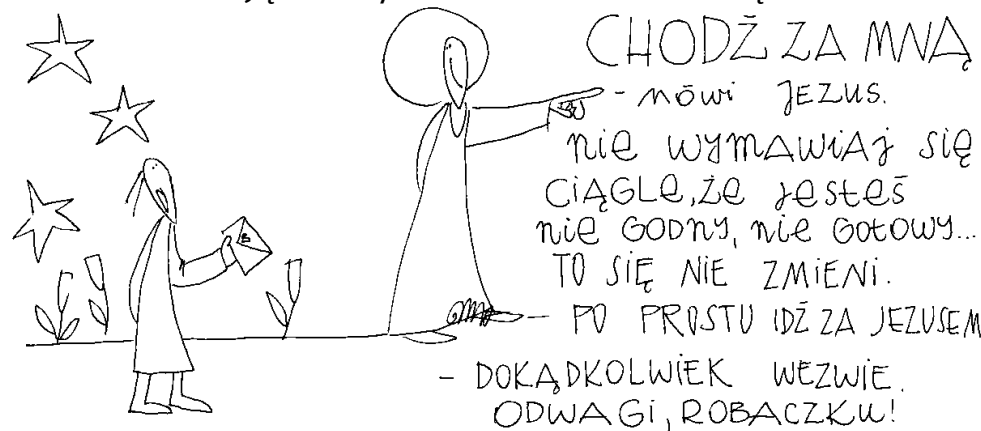 CHODŹ ZA MNĄ
- mówi JEZUS.
nie wymawiaj się
CIĄGLE, ŻE jesteś
nie GODNY, nie GOTOWY...
TO SIĘ NIE ZMIENI.
- PO PROSTU IDŹ ZA JEZUSEM
- DOKĄDKOLWIEK WEZWIE.
ODWAGI, ROBACZKU!